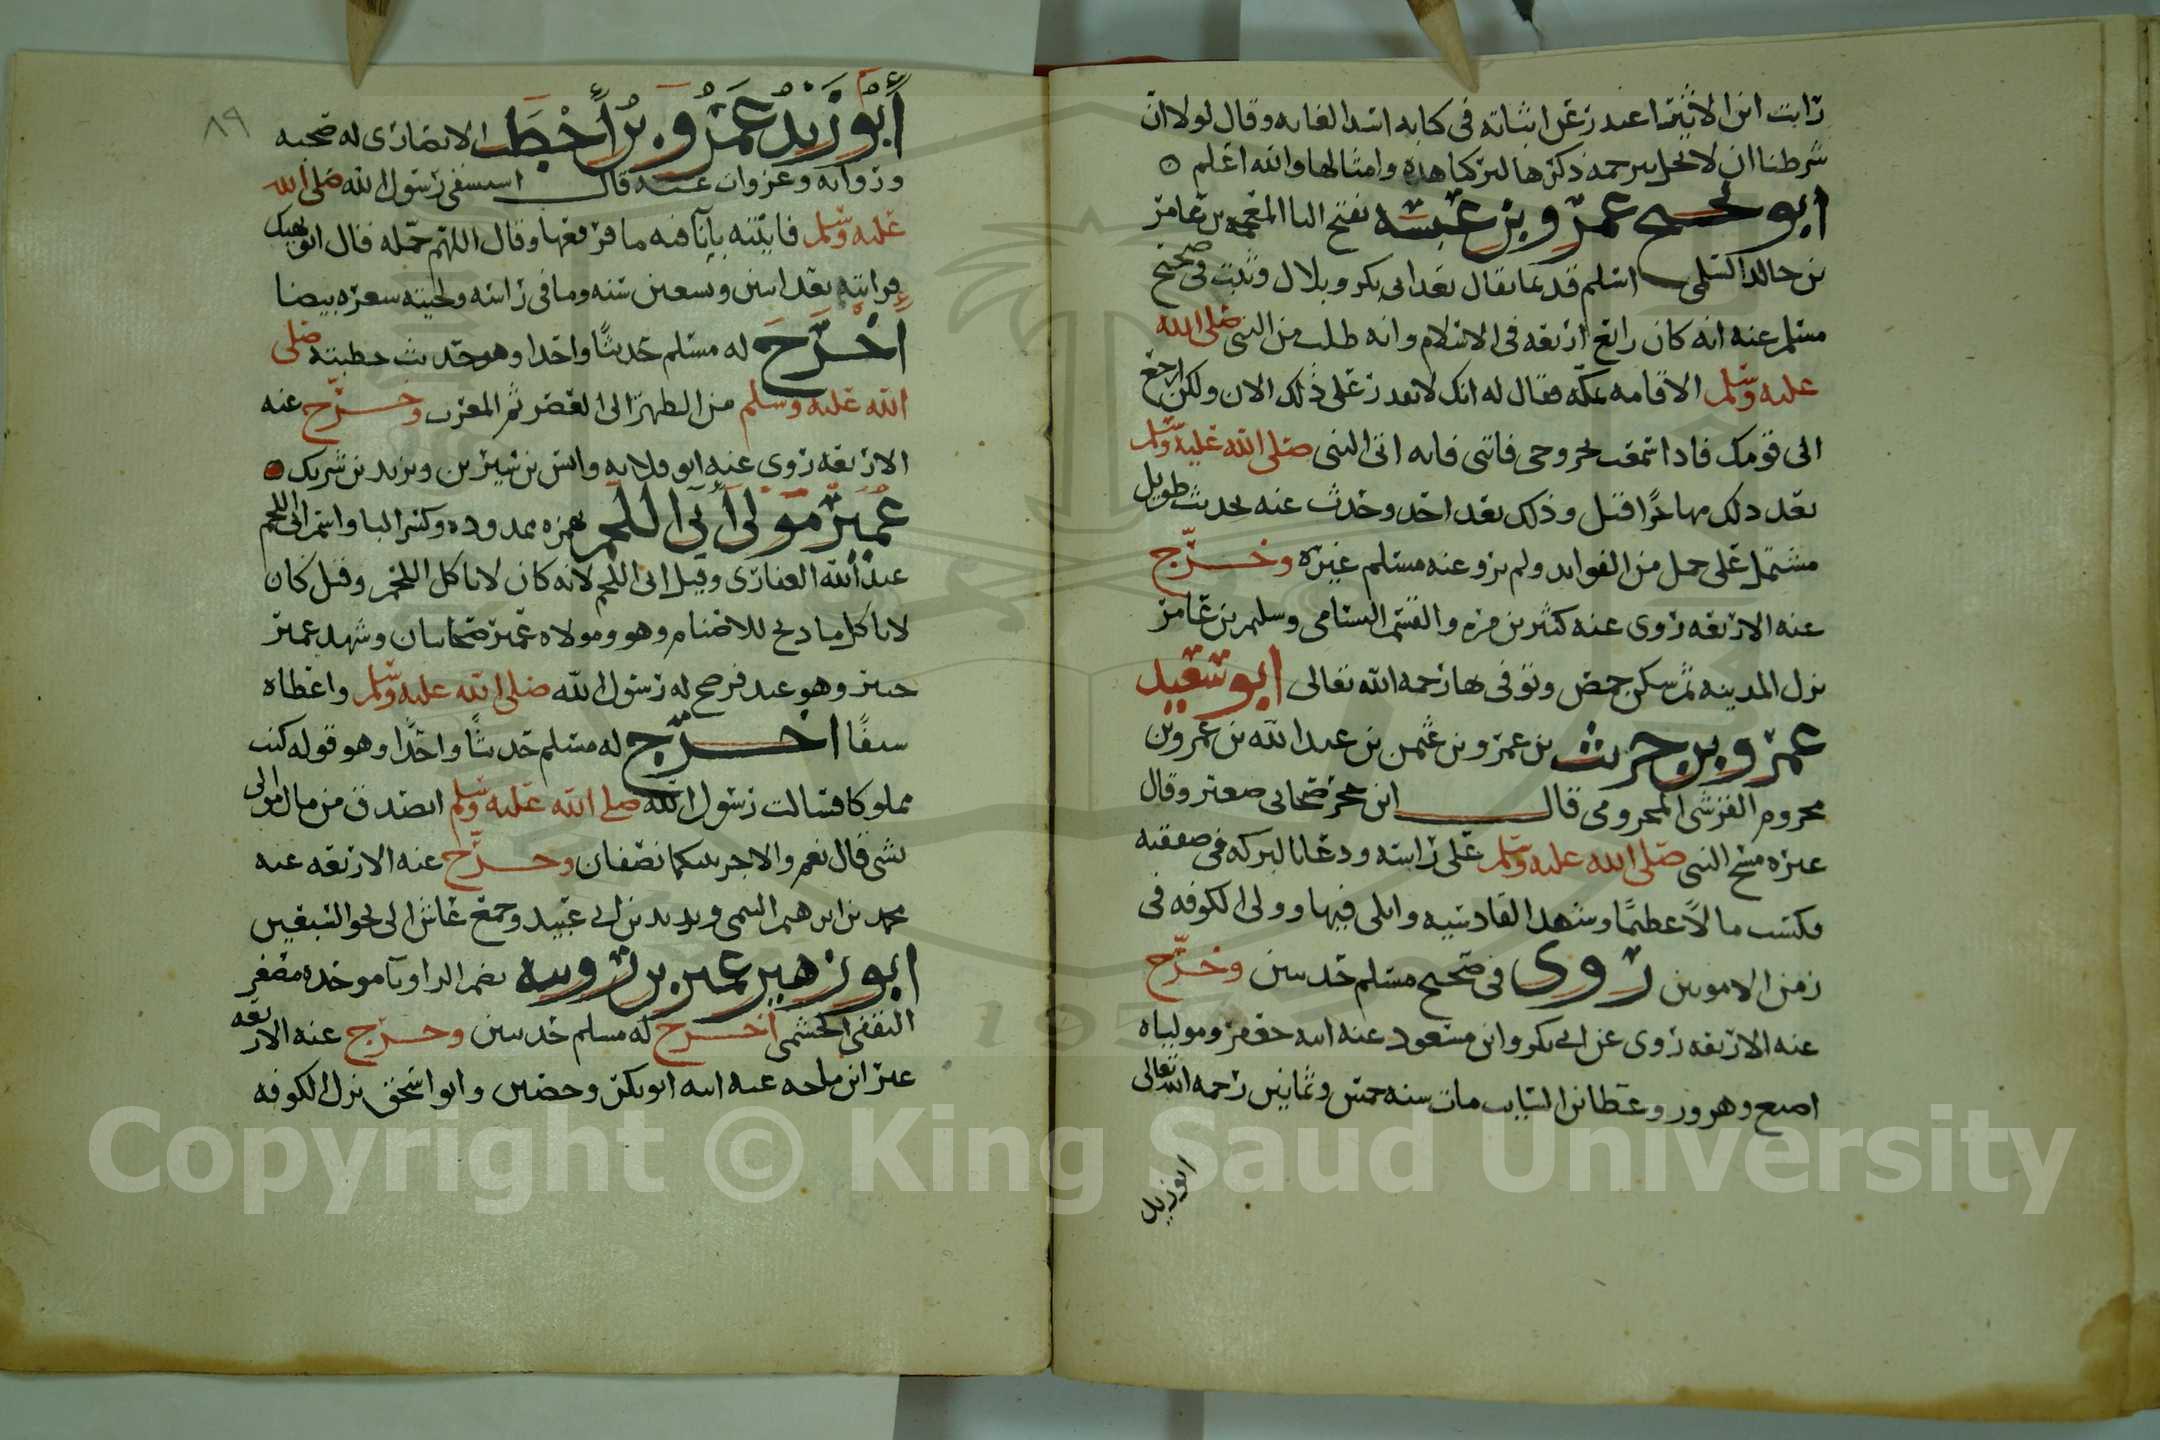 رايت ابن الاثير اعتذر عن اثباته في كتابه اسد الغابه وقال لولا ان
شرطنا ان لا نخل بترجمه ذكرها لتركنا هذه وامثالها والله اعلم
ابو نجيح عمرو بن عبسه بفتح البا المعجمه بن عامر
بن خالد السلمي اسلم قديما يقال بعد ابي بكر وبلال وثبت في صحيح
مسلم عنه انه كان رابع اربعه في الاسلام وانه طلب من النبي صلى الله
عليه وسلم الاقامه بمكه فقال له انك لا تقدر على ذلك الان ولكن ارجع
الى قومك فاذا سمعت بخروجي فاتني فانه اتى النبي صلى الله عليه وسلم
بعد ذلك مهاجرًا قبل وذلك بعد احد وحدث عنه بحديث طويل
مشتمل على جمل من الفوايد ولم يرو عنه مسلم غيره وخرّج
عنه الاربعه روى عنه كثير بن مره والقسم الشامي وسليم بن عامر
نزل المدينه ثم سكن حمص وتوفي بها رحمه الله تعالى ابو سعيد
عمرو بن حريث بن عمرو بن عثمن بن عبد الله بن عمرو بن
مخزوم القرشي المخزومي قال ابن حجر صحابي صغير وقال
غيره مسح النبي صلى الله عليه وسلم على راسه ودعا بالبركه في صفقته
فكسب مالاً عظيمًا وشهد القادسيه وابلى فيها وولي الكوفه في
زمن الامويين روى في صحيح مسلم حديثين وخرّج
عنه الاربعه روى عن ابي بكر وابن مسعود عنه ابنه جعفر ومولياه
اصبع وهرور وعطا بن السايب مات سنه خمس وثمانين رحمه الله تعالى
ابو زيد
٨٩
أبو زيد عمرو بن أخطب الانصاري له صحبه
وروايه وغزوات عنه قال استسقى رسول الله صلى الله
عليه وسلم فاتيته بانا فيه ما فرفعها وقال اللهم جمله قال ابو نهيك
فرايته بعد اثنين وتسعين سنه وما في راسه ولحيته شعره بيضا
اخرّج له مسلم حديثًا واحدا وهو حديث خطبته صلى
الله عليه وسلم من الظهر الى العصر ثم المغرب وخرّج عنه
الاربعه روى عنه ابو قلابه وانس بن سيرين ويزيد بن شريك
عمير مولى آبي اللحم بهمزه ممدوده وكسر البا واسم ابي اللحم
عبد الله الغفاري وقيل ابي اللحم لانه كان لا ياكل اللحم وقيل كان
لا ياكل ما ذبح للاصنام وهو ومولاه عمير صحابيان وشهد عمير
حنين وهو عبد فرضخ له رسول الله صلى الله عليه وسلم واعطاه
سيفًا اخرّج له مسلم حديثًا واحدًا وهو قوله كنت
مملوكا فسالت رسول الله صلى الله عليه وسلم اتصدق من مال موالي
بشي قال نعم والاجر بينكما نصفان وخرّج عنه الاربعه عنه
محمد بن ابرهيم التيمي ويزيد بن ابي عبيد وجمع عاش الى نحو السبعين
ابو زهير عمير بن رويبه بضم الرا وبا موحده مصغر
الثقفي الجشمي اخرج له مسلم حديثين وخرّج عنه الاربعه
غير ابن ماجه عنه ابنه ابو بكر وحصين وابو اسحق نزل الكوفه
Copyright © King Saud University
1957